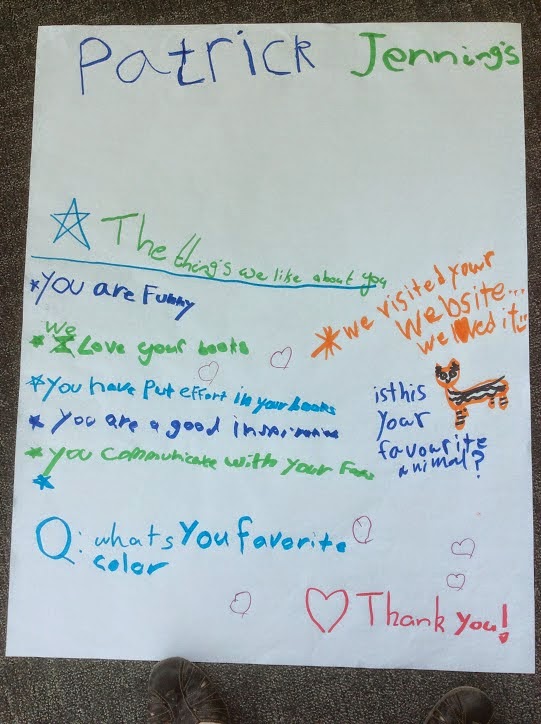 Patrick Jenning's
The thing's we like about you
*You are Funny
We
* Love your books
*You have Put effort in your books
* You are a good
* You communicate with your Fans
*
*we visited your
Website...
we loved it
is this
your
favourite
animal?
Q: whats You favorite
color
Thank you!